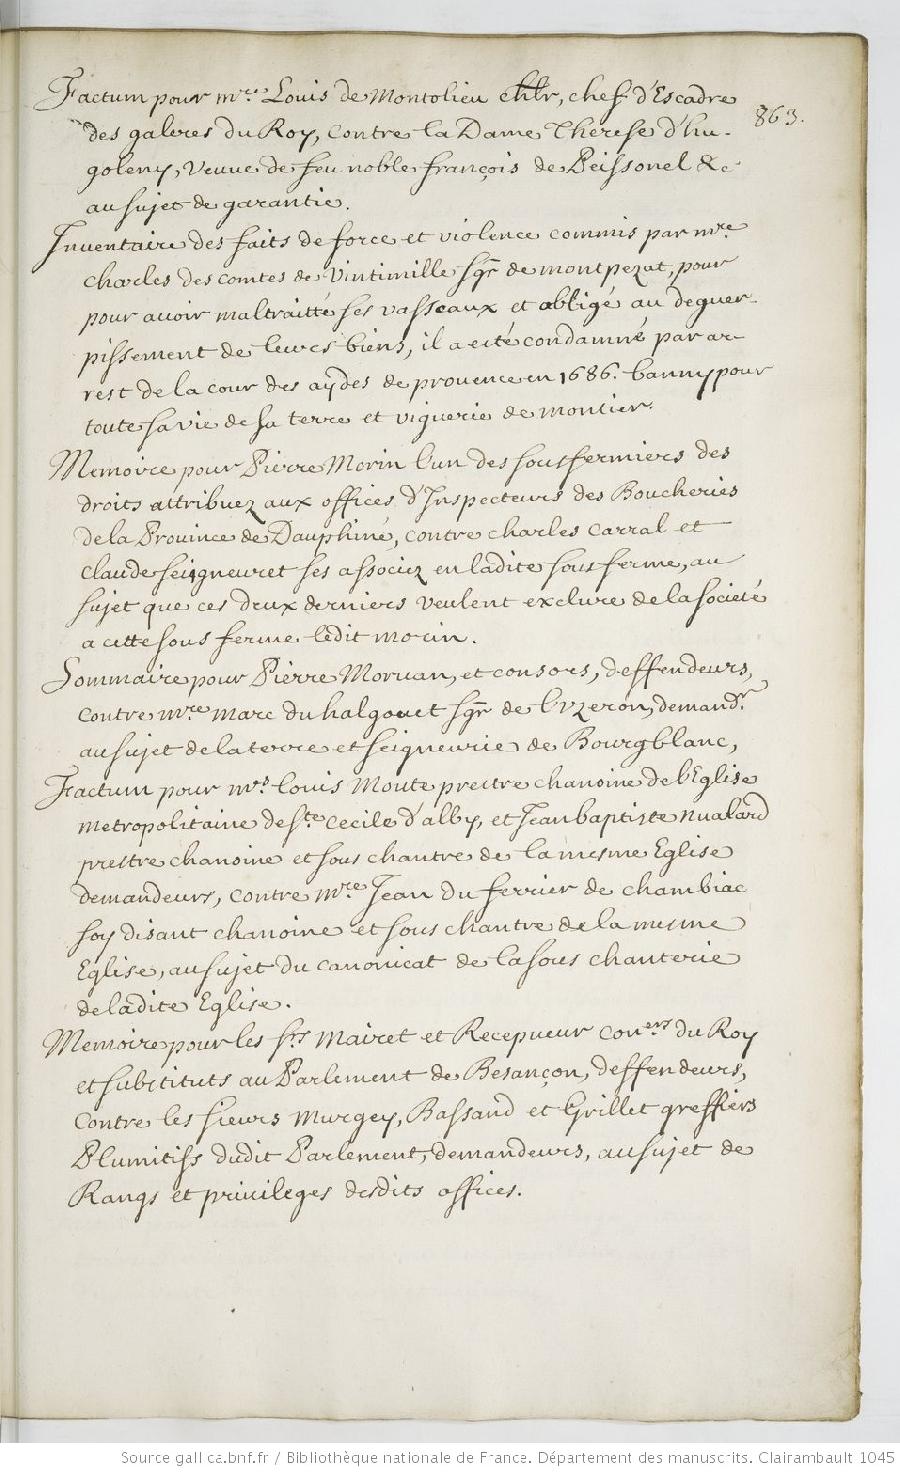 Factum pour mre Louis de Montolieu chlr, chef d'Escadre
863.
des galeres du Roy, contre la Dame Therese d'hu-
goleny, Veuve de feu noble françois de Peissonel &c
au sujet de garantie.
Inventaire des faits de force et violence commis par mre
charles des comtes de Vintimille sgr de montpezat, pour
pour avoir maltraitté ses vasseaux et obligé au deguer-
pissement de leurs biens, il a eité condamné par ar-
rest de la cour des aydes de provence en 1686. banny pour
toute sa vie de sa terre et viguerie de moutier.
Memoire pour Pierre Morin l'un des sousfermiers des
droits attribuez aux offices d'Inspecteurs des Boucheries
de la Province de Dauphiné, contre charles carral et
claude seigneuret ses associez en ladite sous ferme, au
sujet que ces deux derniers veulent exclure de la societé
a cette sous ferme ledit morin.
Sommaire pour Pierre Morvan, et consors, deffendeurs,
contre mre marc du halgouet sgr de l'uzeron, demandr
au sujet de la terre et seigneurie de Bourgblanc,
Factum pour mrs louis Moute prestre chanoine de l'Eglise
metropolitaine de ste Cecile d'alby, et Jean baptiste nualard
prestre chanoine et sous chantre de la mesme Eglise
demandeurs, contre mre Jean du ferrier de chambiac
soy disant chanoine et sous chantre de la mesme
Eglise, au sujet du canonicat de la sous chanterie
de ladite Eglise.
Memoire pour les srs Mairet et Recepueur coners du Roy
et substituts au Parlement de Besançon, deffendeurs,
contre les sieurs Murgey, Bassand et Grillet greffiers
Plumitifs dudit Parlement, demandeurs, au sujet de
Rangs et privileges desdits offices.
Source gallica.bnf.fr / Bibliothèque nationale de France. Département des manuscrits. Clairambault 1045